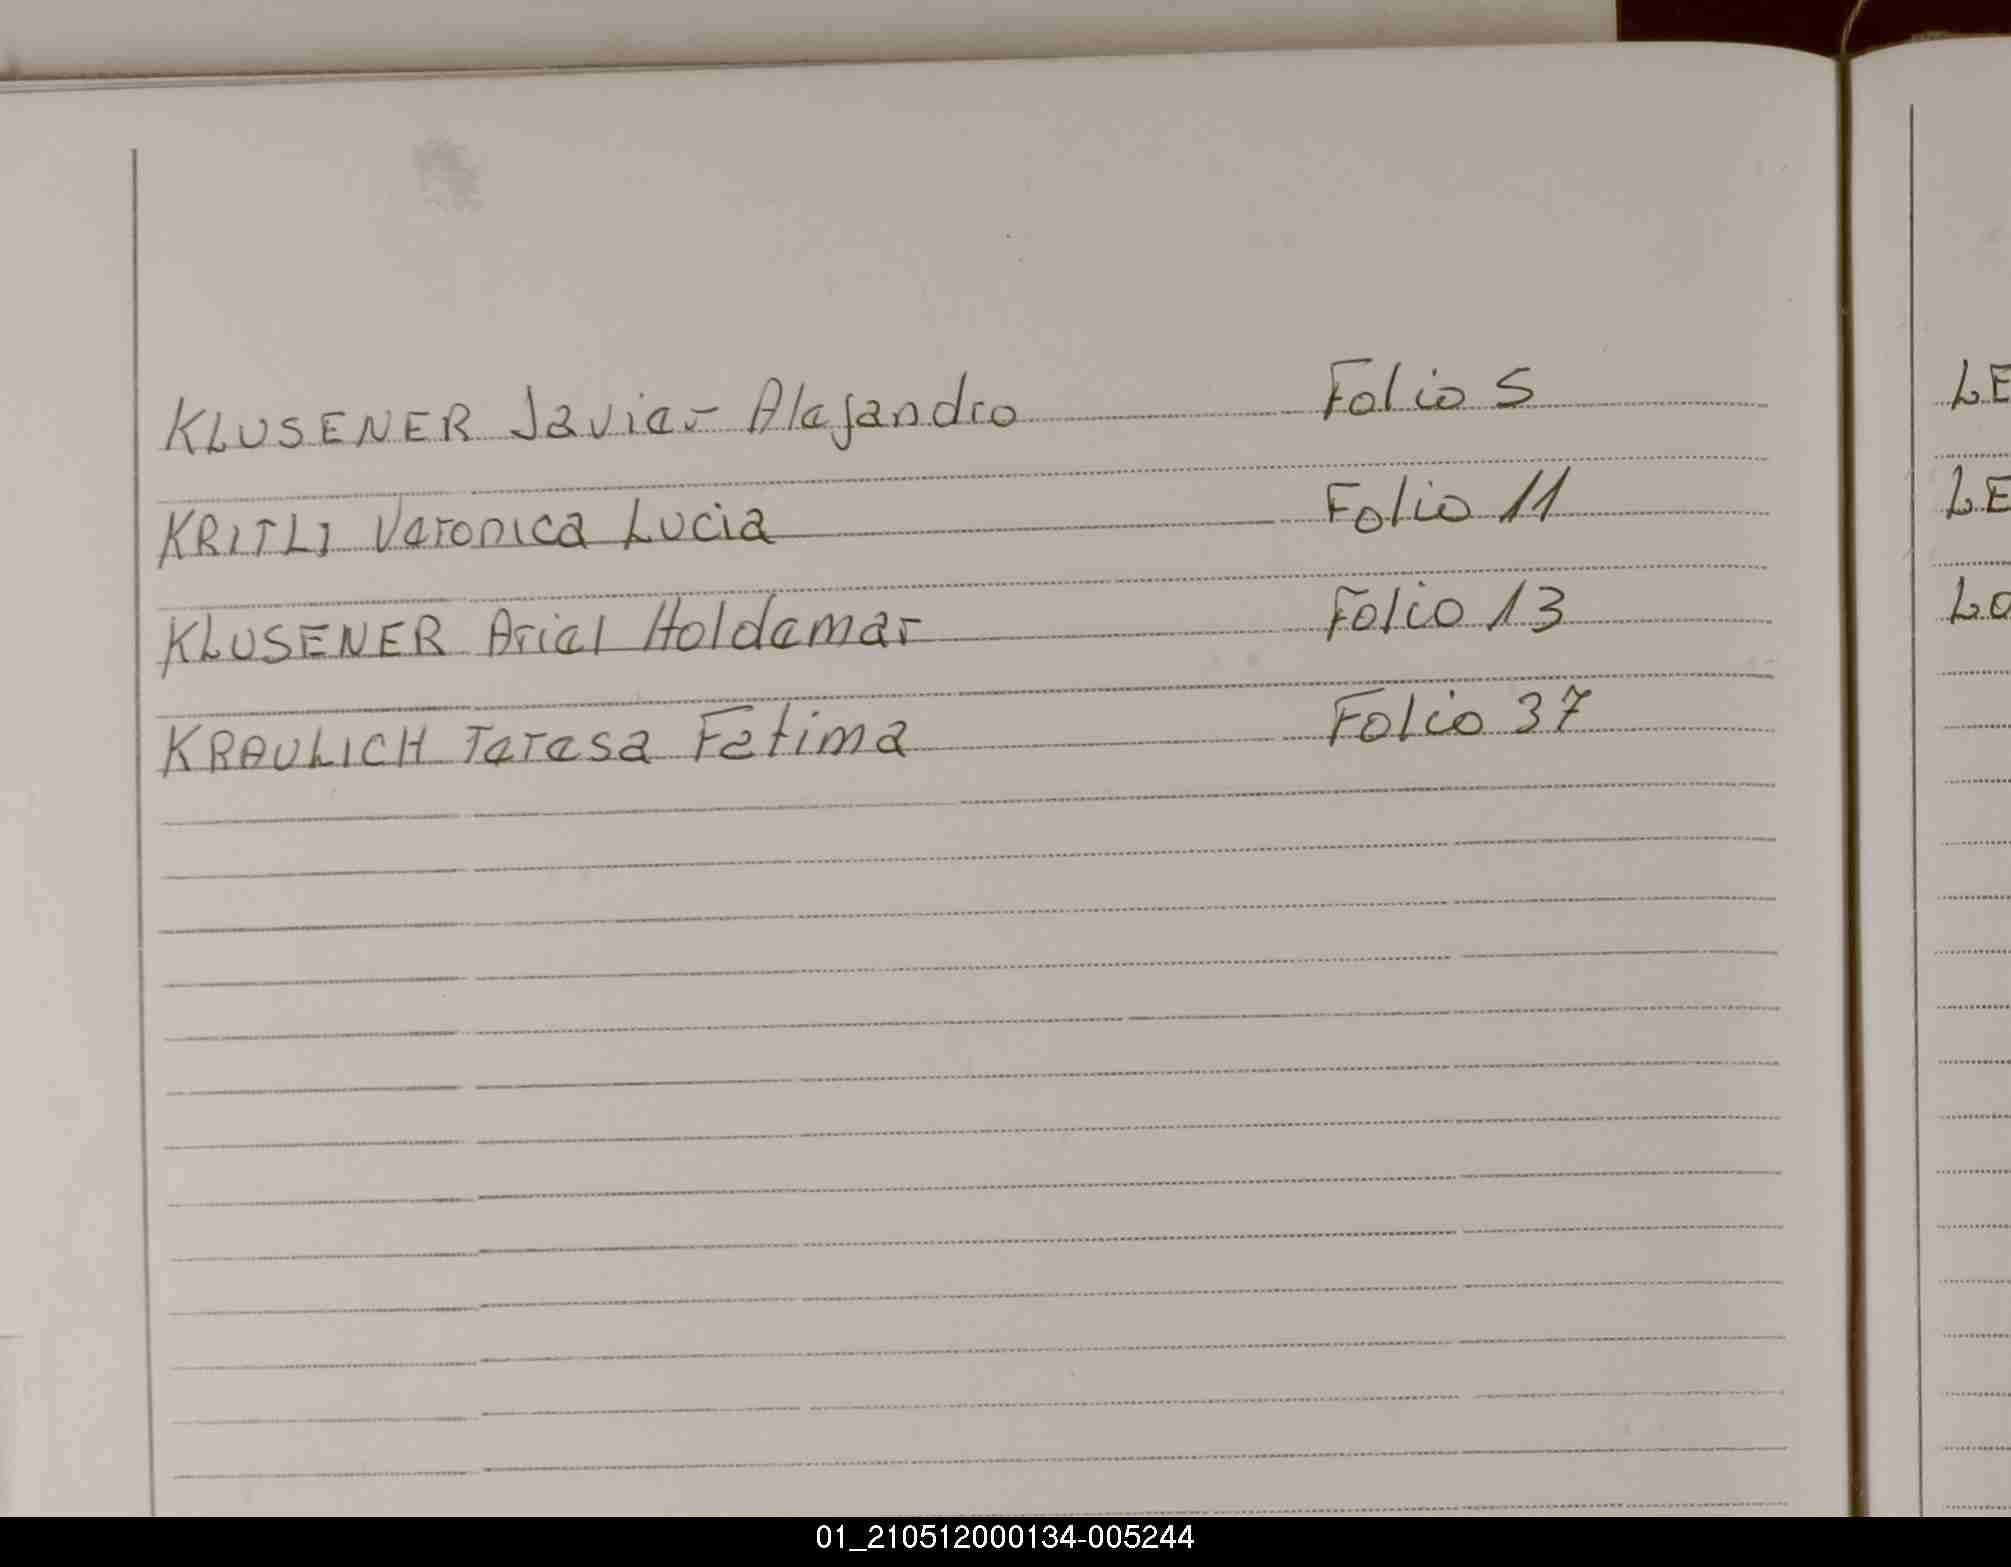 KLUSENER Javier Alejandro Folio 5
KRITLI Veronica Lucia Folio 11
KLUSENER Ariel Holdemar Folio 13
KRAULICH Teresa Fatima Folio 37
LE
LE
LO
01_210512000134-005244